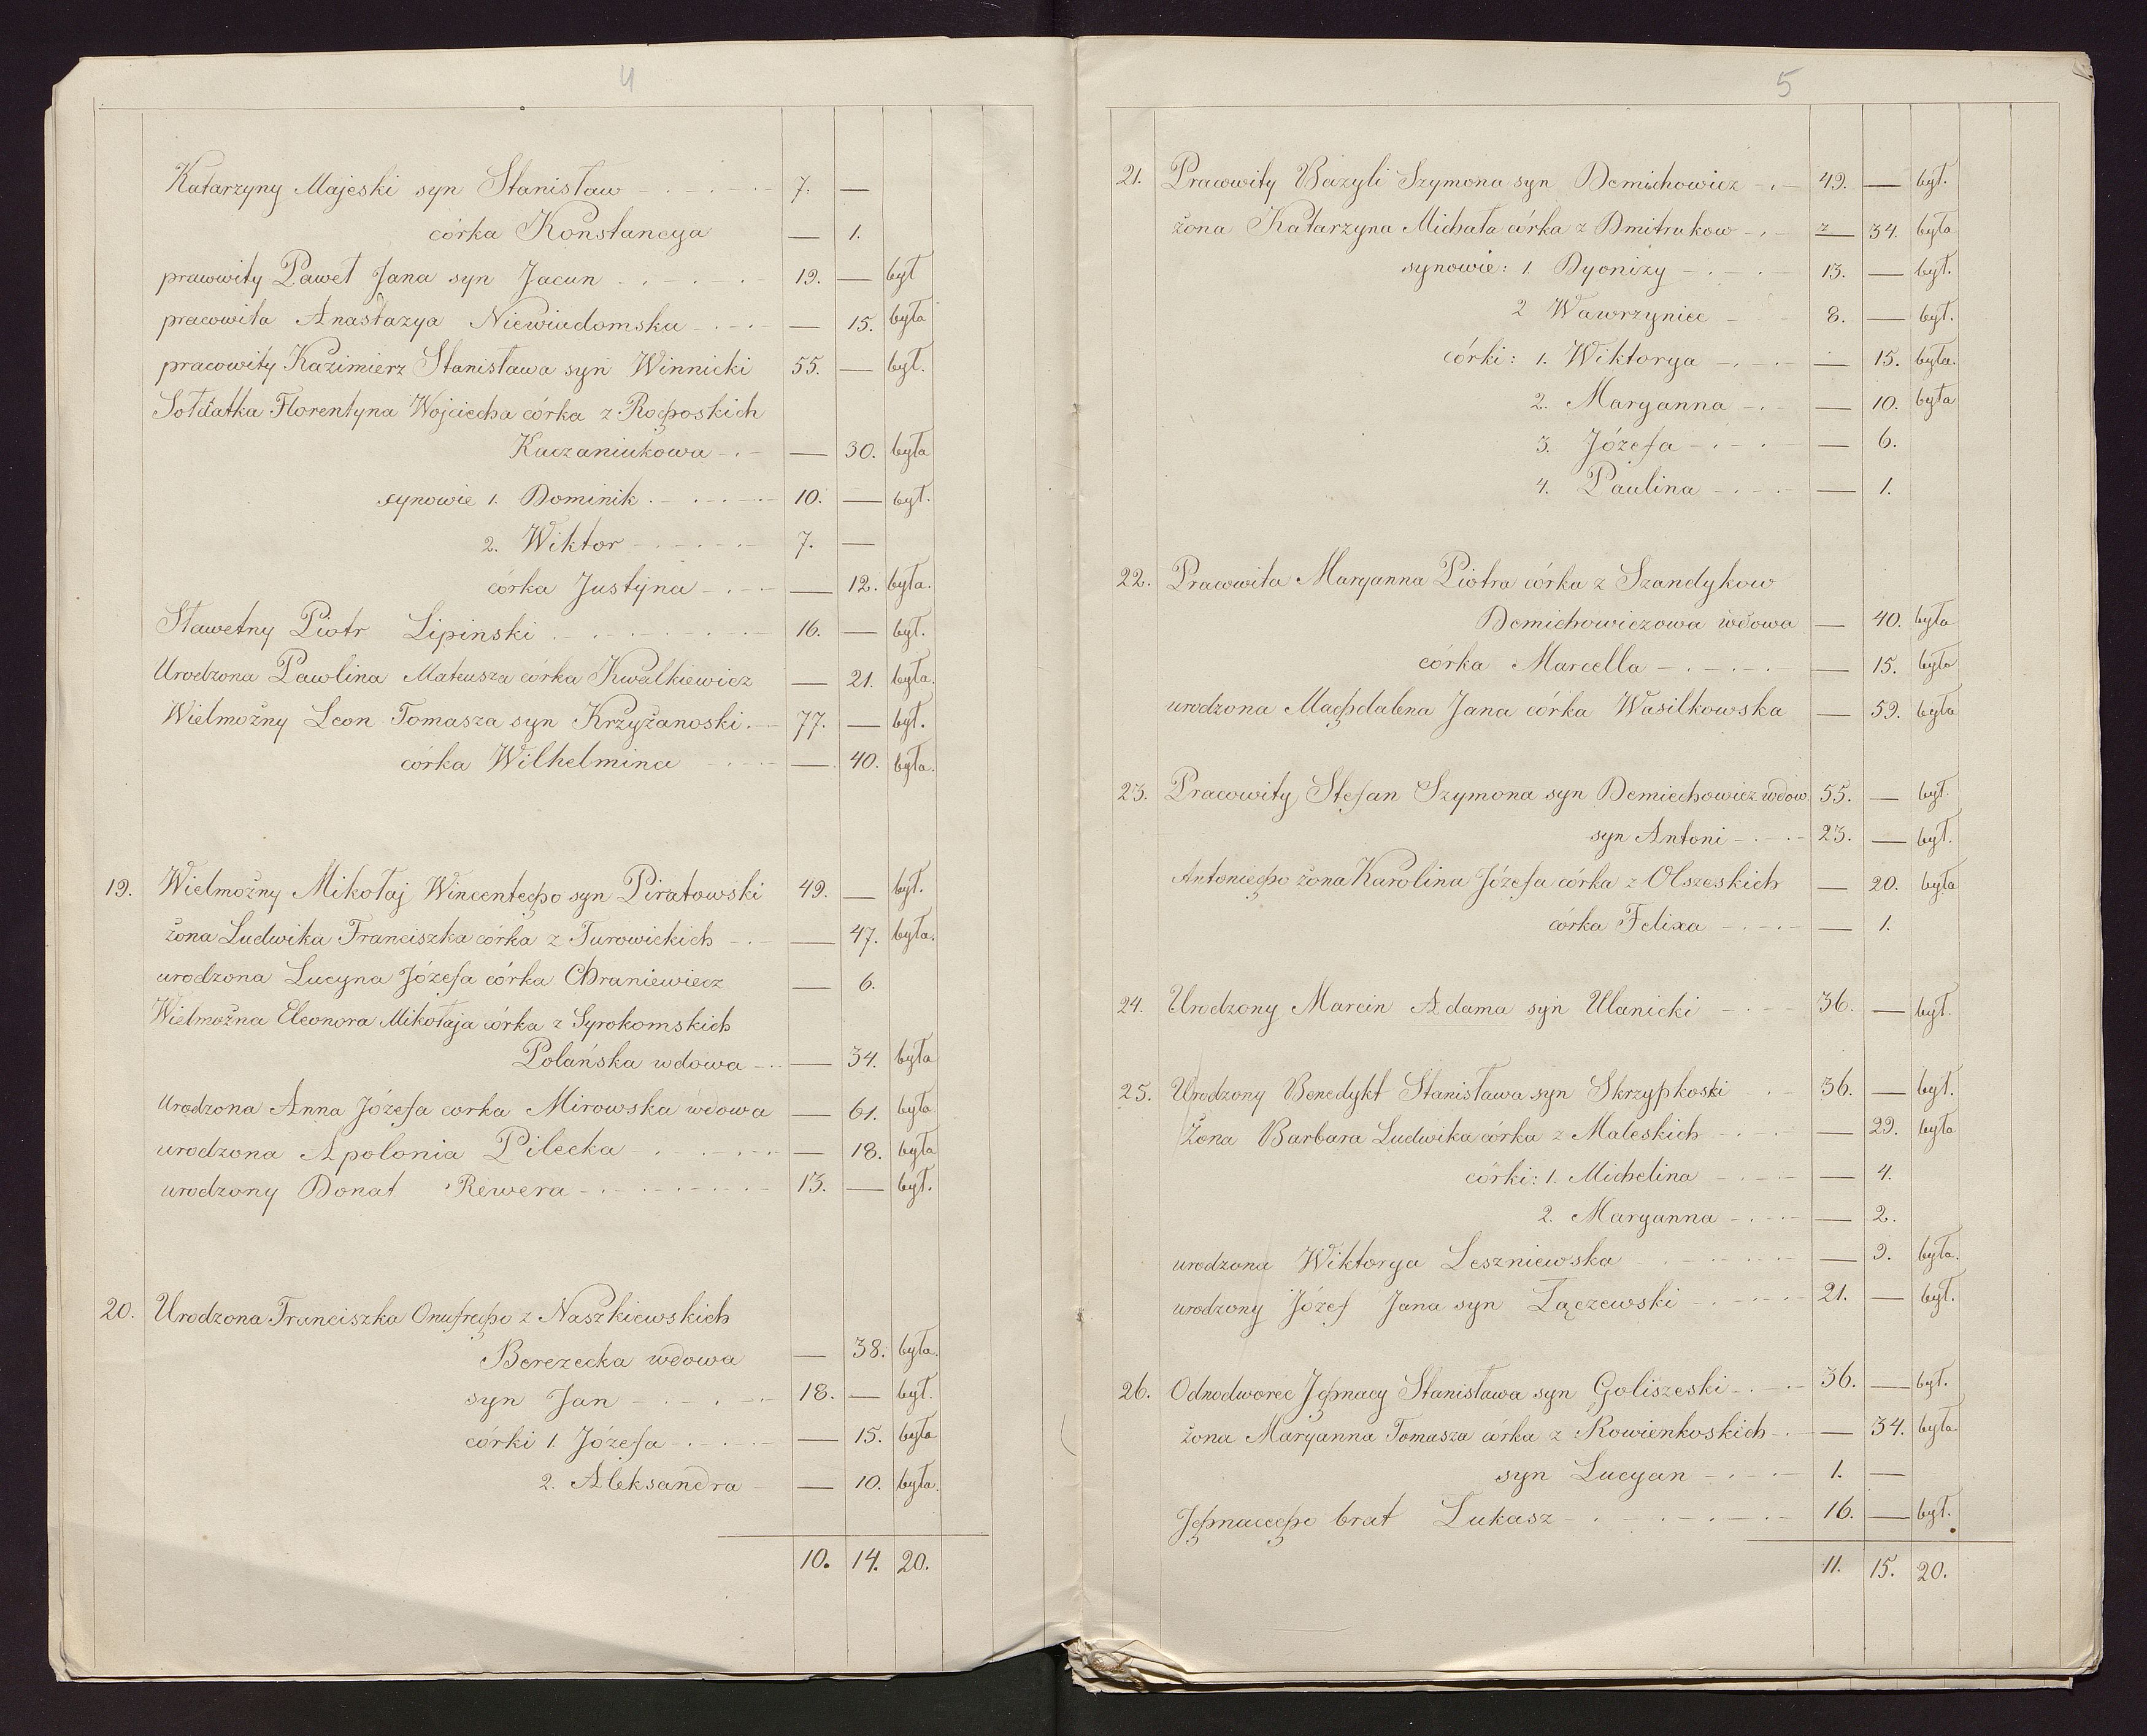 4
Katarzyny Majeski syn Stanisław 7. —
córka Konstancya — 1.
pracowity Paweł Jana syn Jacun 19. — był
pracowita Anastazya Niewiadomska — 15. była
pracowity Kazimierz Stanisława syn Winnicki 55. — był.
Sołdatka Florentyna Wojciecha córka z Rogoskich
Kaczaniukowa — 30. była
synowie 1. Dominik 10. — był.
2. Wiktor 7. —
córka Justyna — 12. była.
Sławetny Piotr Lipinski 16. — był.
Urodzona Pawlina Mateusza córka Kwalkiewicz — 21. była.
Wielmożny Leon Tomasza syn Krzyżanoski 77. — był.
córka Wilhelmina — 40. była.
19. Wielmożny Mikołaj Wincentego syn Piratowski 49. — był.
żona Ludwika Franciszka córka z Turowickich — 47. była.
urodzona Lucyna Józefa córka Chraniewicz — 6.
Wielmożna Eleonora Mikołaja córka z Syrokomskich
Polańska wdowa — 34. była
Urodzona Anna Józefa corka Mirowska wdowa — 61. była
urodzona Apolonia Pilecka — 18. była
urodzony Donat Rewera 13. — był.
20. Urodzona Franciszka Onufrego z Naszkiewskich
Berezecka wdowa — 38. była.
syn Jan 18. — był.
córki 1. Józefa — 15. była
2. Aleksandra — 10. była.
10. 14. 20.
5
21. Pracowity Bazyli Szymona syn Demichowicz 49. — był.
żona Katarzyna Michała córka z Dmitrukow — 34. była
synowie: 1. Dyonizy 13. — był.
2 Wawrzyniec 8. — był.
córki: 1. Wiktorya — 15. była.
2. Maryanna — 10. była
3. Józefa — 6.
4. Paulina — 1.
22. Pracowita Maryanna Piotra córka z Szandykow
Demichowiczowa wdowa — 40. była
córka Marcella — 15. była
urodzona Magdalena Jana córka Wasilkowska — 59. była
23. Pracowity Stefan Szymona syn Demiechowicz wdow. 55. — był.
syn Antoni 23. — był.
Antoniego żona Karolina Józefa córka z Olszeskich — 20. była
córka Felixa — 1.
24. Urodzony Marcin Adama syn Ulanicki 36. — był.
25. Urodzony Benedykt Stanisława syn Skrzypkoski 36. — był.
Żona Barbara Ludwika córka z Maleskich — 29. była
córki: 1. Michelina — 4.
2. Maryanna — 2.
urodzona Wiktorya Leszniewska — 9. była.
urodzony Józef Jana syn Łączewski 21. — był.
26. Odnodworec Jgnacy Stanisława syn Goliszeski 36. — był.
żona Maryanna Tomasza córka z Rowienkoskich — 34. była
syn Lucyan 1. —
Jgnacego brat Łukasz 16. — był.
11. 15. 20.